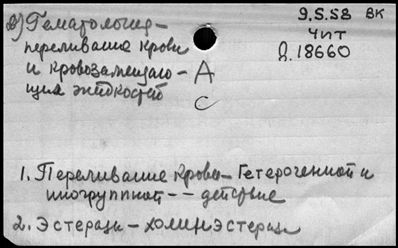 2) Гематология –
переливание крови
и кровозамещаю-
щих жидкостей
А
С
9.5.58 ВК
Чит
Д.18660
1. Переливание крови – Гетерогенной и
иногруппной – – действие
2. Эстеразы – холинэстеразы